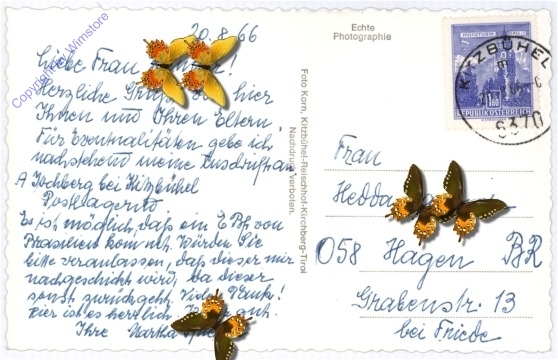 20.8.66
Liebe Frau
Herzliche Grüße hier
Ihnen und Ihren Eltern
Für Eventualitäten gebe ich
nachstehend meine Anschrift an
A Jochberg bei Kitzbühel
Postlagernd
Es ist möglich, daß ein EBf. von
Brasilien kommt. Würden Sie
bitte veranlassen, daß dieser mir
nachgeschickt wird, da dieser
sonst zurückgeht. Vielen Dank!
Hier ist es herrlich gut.
Ihre Martha
Copyright by Wimstore
Echte
Photographie
Foto Korn, Kitzbühel-Reischhof-Kirchberg-Tirol
Nachdruck verboten.
REPUBLIK ÖSTERREICH
KITZBÜHEL
6370
Frau
Hedda
058 Hagen BR
Grabenstr. 13
bei Friede